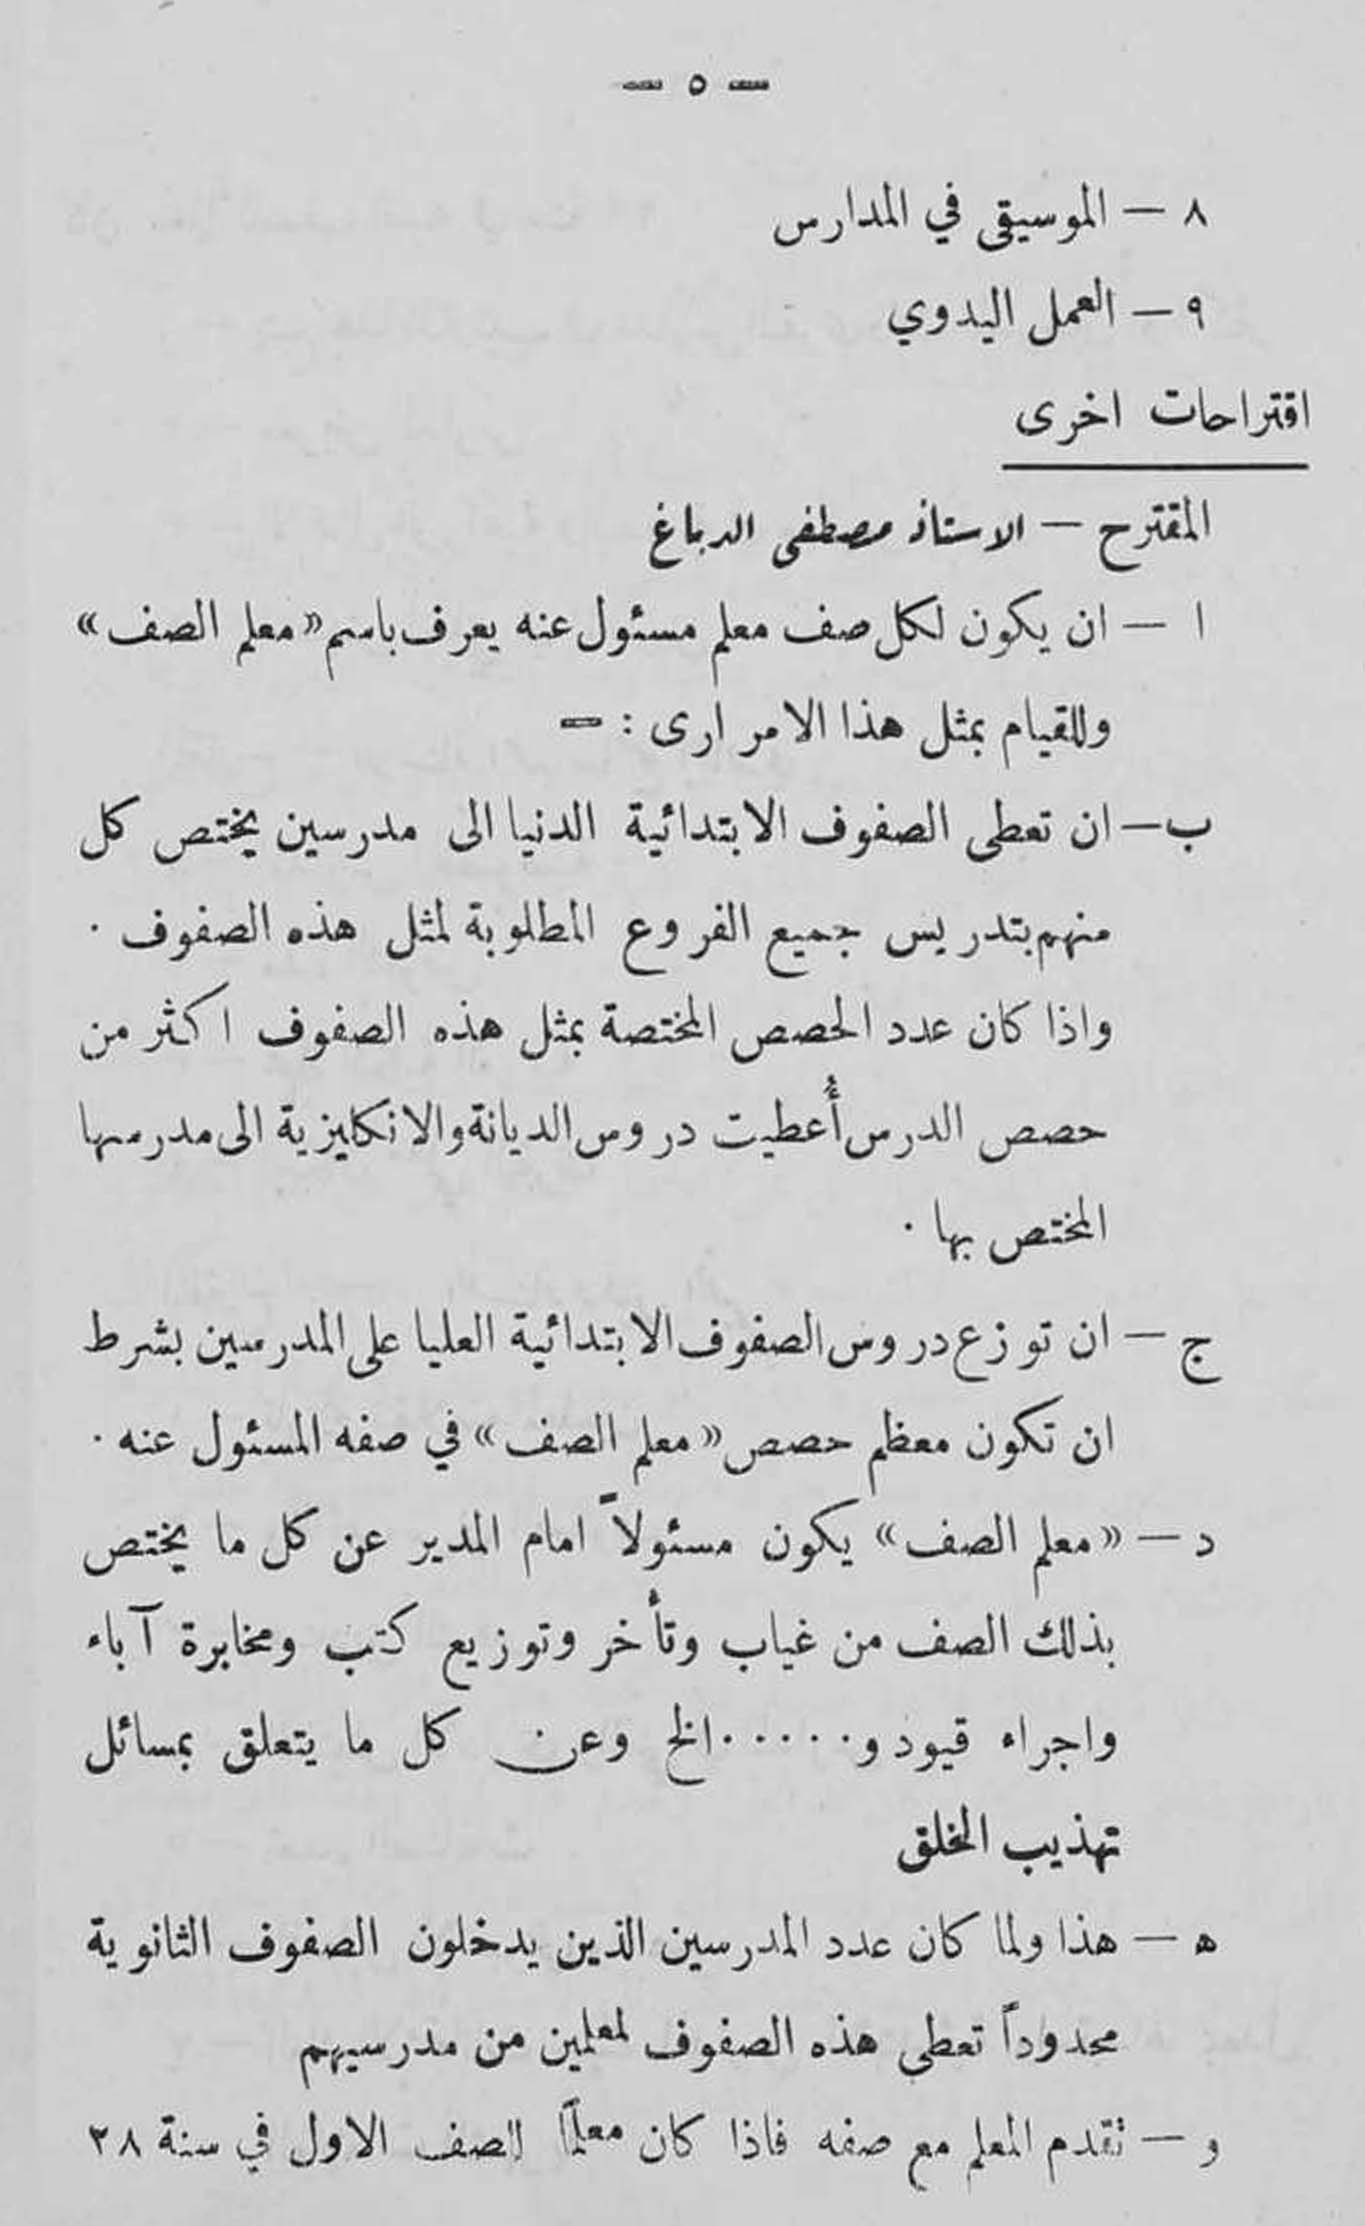 — ٥ —
٨ — الموسيقى في المدارس
٩ — العمل اليدوي
اقتراحات اخرى
المقترح — الاستاذ مصطفى الدباغ
ا — ان يكون لكل صف معلم مسئول عنه يعرف باسم «معلم الصف»
وللقيام بمثل هذا الامر ارى : —
ب — ان تعطى الصفوف الابتدائية الدنيا الى مدرسين يختص كل
منهم بتدريس جميع الفروع المطلوبة لمثل هذه الصفوف .
واذا كان عدد الحصص المختصة بمثل هذه الصفوف اكثر من
حصص الدرس أُعطيت دروس الديانة والانكليزية الى مدرسها
المختص بها .
ج — ان توزع دروس الصفوف الابتدائية العليا على المدرسين بشرط
ان تكون معظم حصص «معلم الصف» في صفه المسئول عنه .
د — «معلم الصف» يكون مسئولاً امام المدير عن كل ما يختص
بذلك الصف من غياب وتأخر وتوزيع كتب ومخابرة آباء
واجراء قيود و . . . . . الخ وعن كل ما يتعلق بمسائل
تهذيب الخلق
ه — هذا ولما كان عدد المدرسين الذين يدخلون الصفوف الثانوية
محدوداً تعطى هذه الصفوف لمعلمين من مدرسيهم
و — تقدم المعلم مع صفه فاذا كان معلمًا للصف الاول في سنة ٣٨